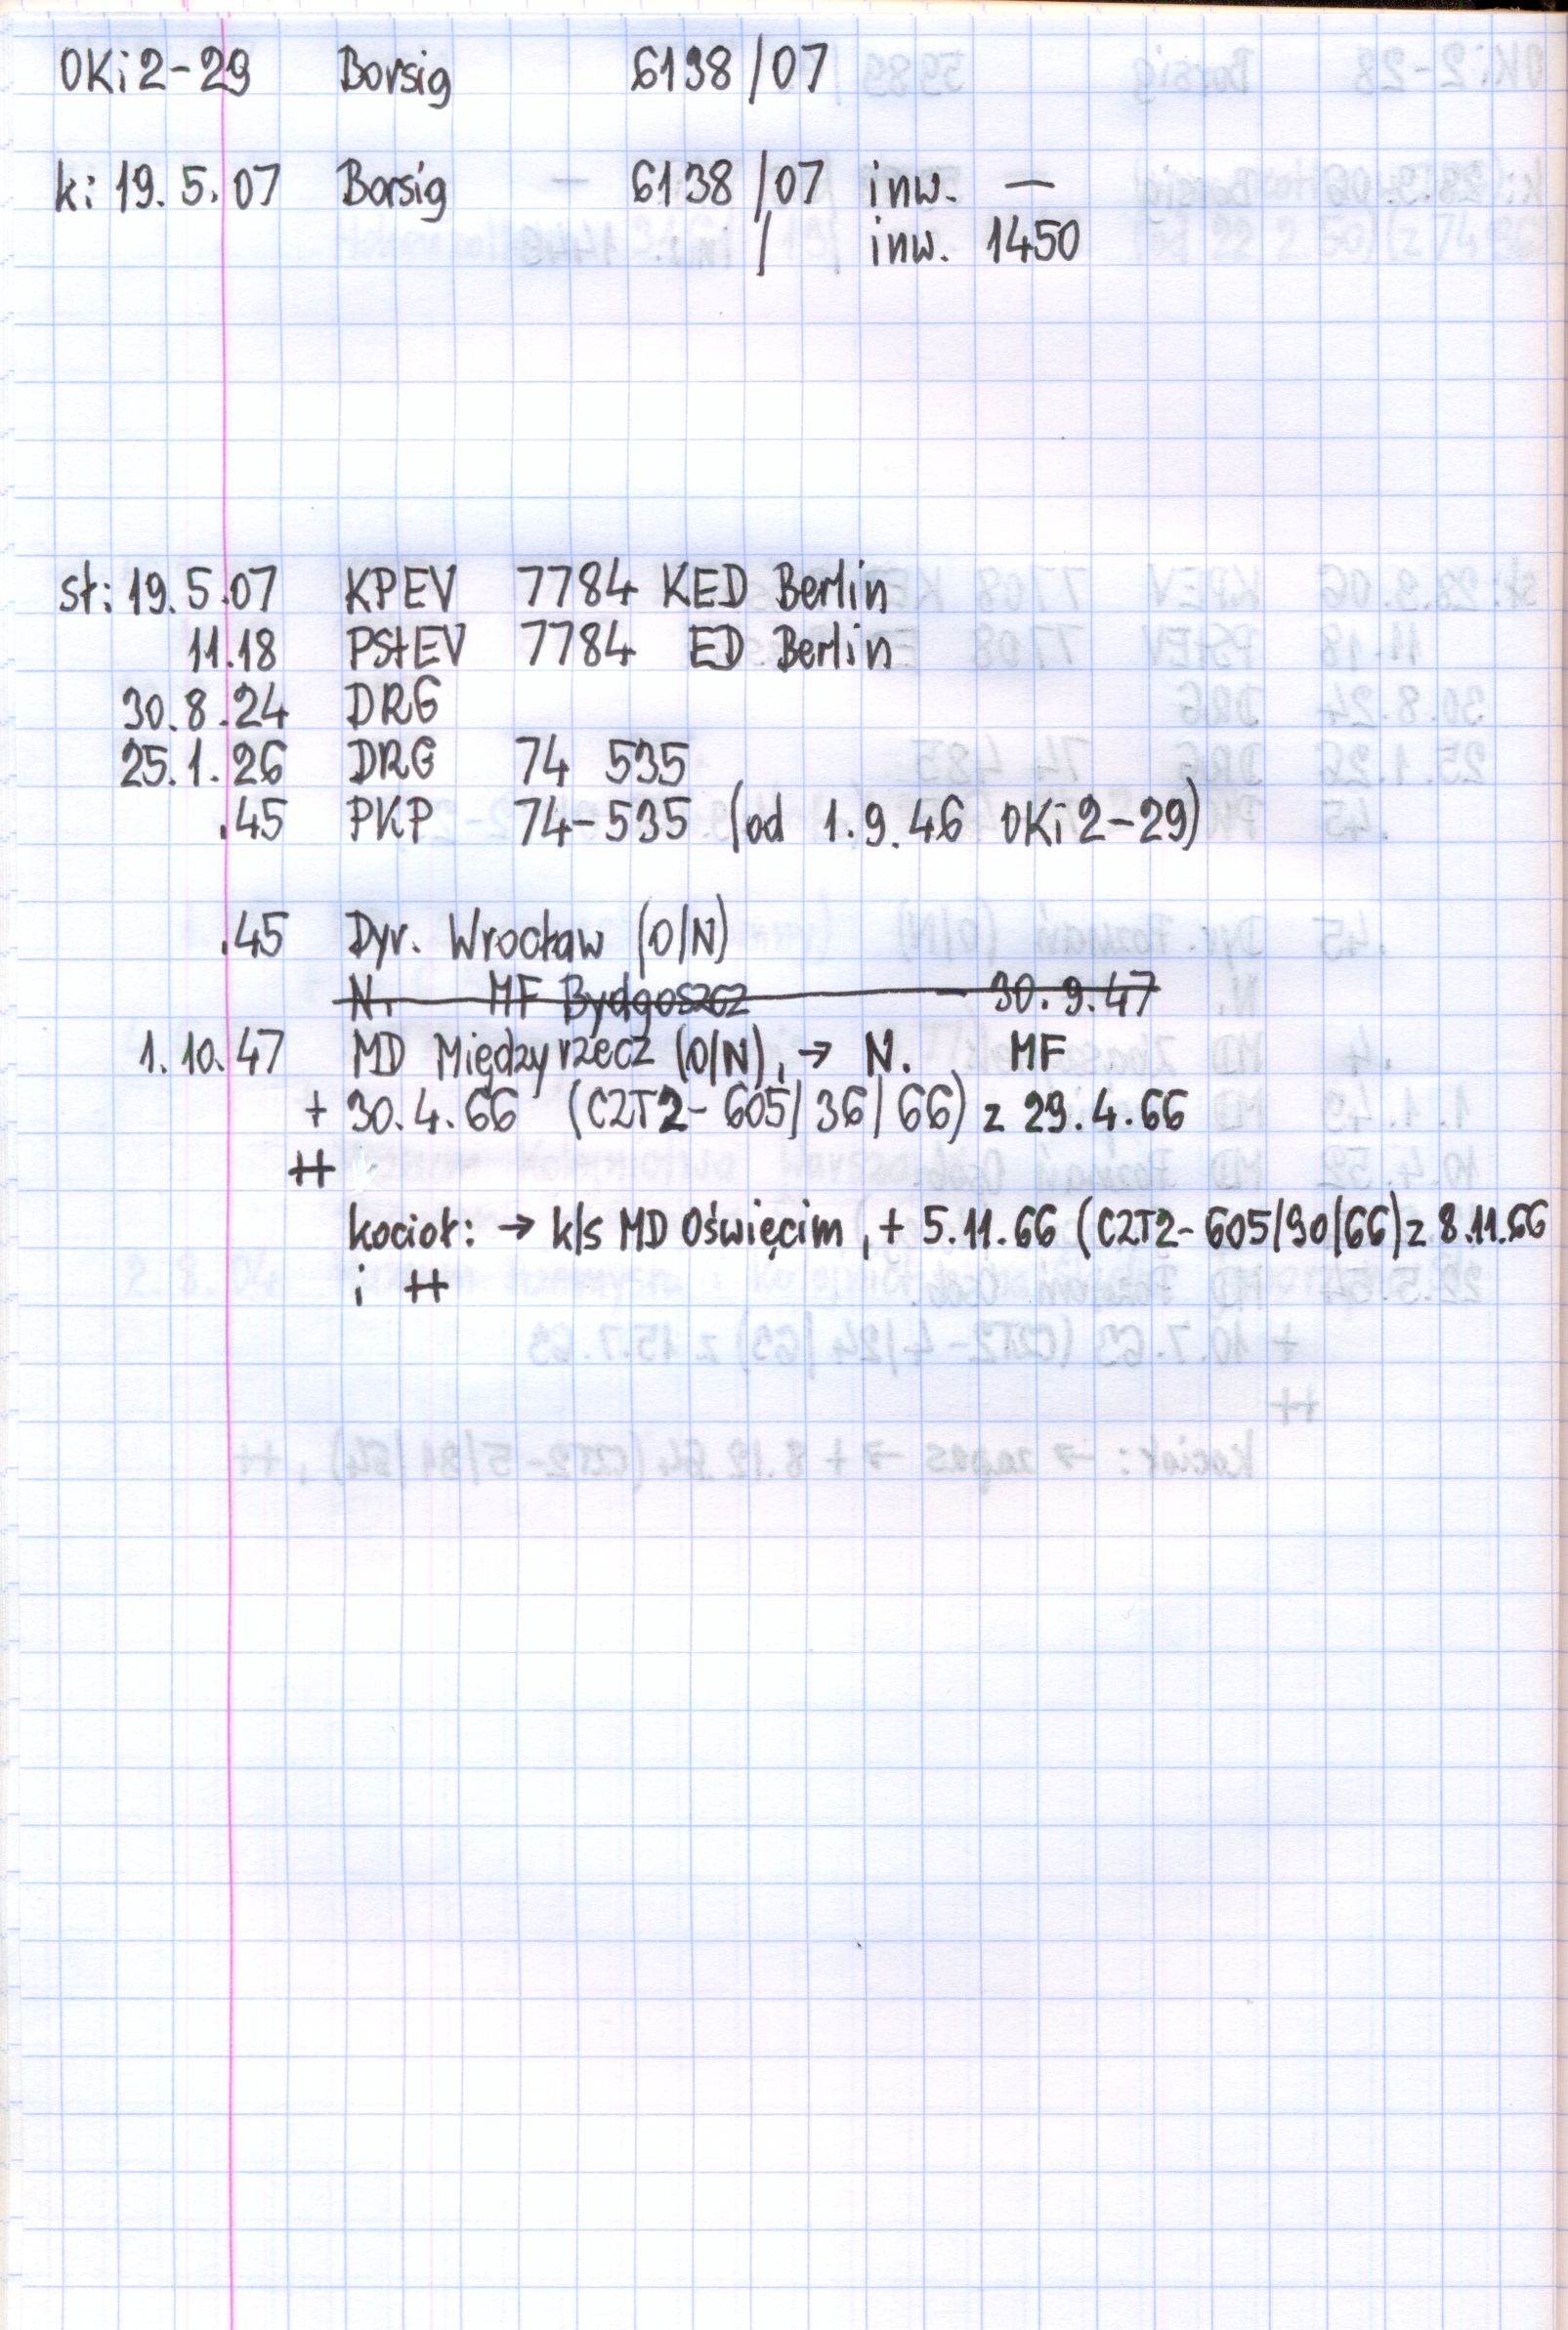 OKi2-29 Borsig 6138/07
k: 19.5.07 Borsig — 6138/07 inw. —
/ inw. 1450
st: 19.5.07 KPEV 7784 KED Berlin
11.18 PStEV 7784 ED Berlin
30.8.24 DRG
25.1.26 DRG 74 535
.45 PKP 74-535 (od 1.9.46 OKi2-29)
.45 Dyr. Wrocław (O/N)
N. MF Bydgoszcz - 30.9.47
1.10.47 MD Międzyrzecz (O/N), → N. MF
+ 30.4.66 (CZT2-605/36/66) z 29.4.66
++
kocioł: → k/s MD Oświęcim, + 5.11.66 (CZT2-605/90/66) z 8.11.66
i ++